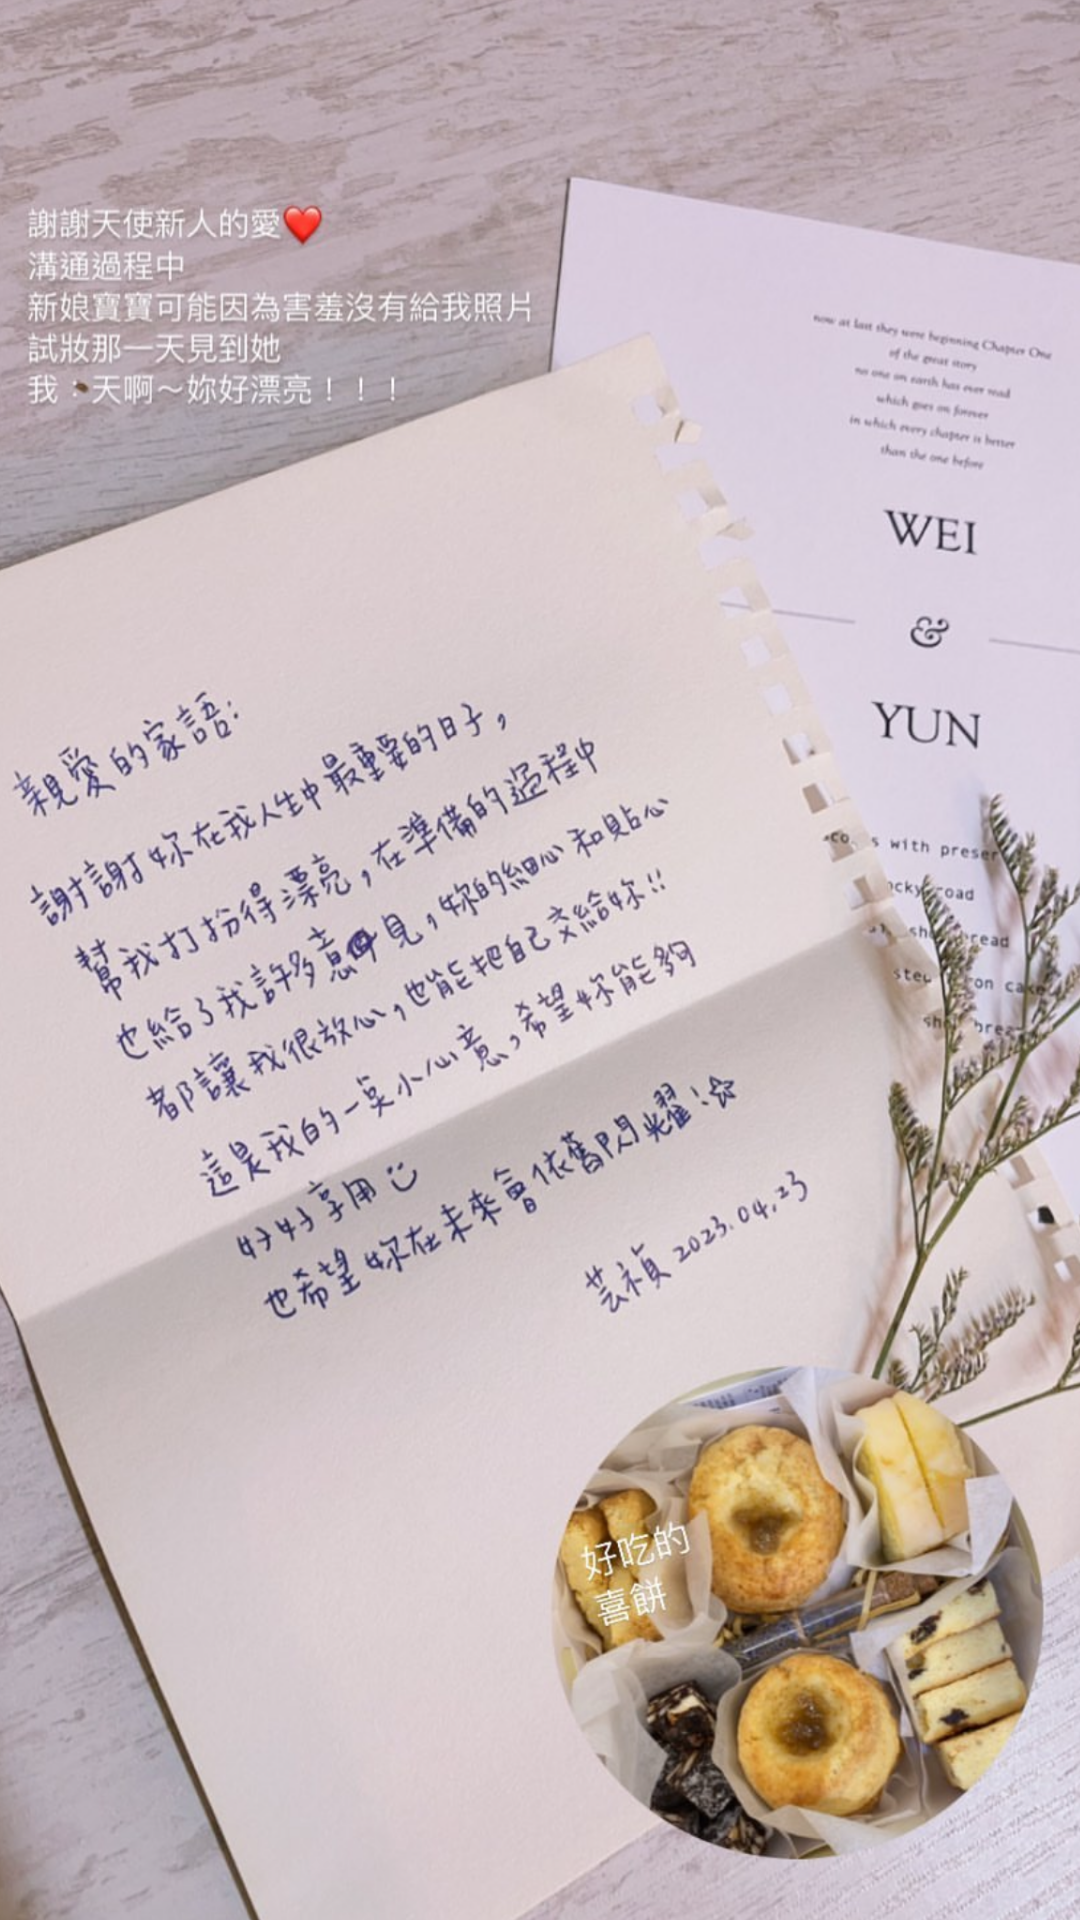 謝謝天使新人的愛❤️
溝通過程中
新娘寶寶可能因為害羞沒有給我照片
試妝那一天見到她
我：天啊～妳好漂亮！！！
now at last they were beginning Chapter One
of the great story
no one on earth has ever read
which goes on forever
in which every chapter is better
than the one before
WEI
&
YUN
with preser
road
親愛的家語:
謝謝妳在我人生中最重要的日子，
幫我打扮得漂亮，在準備的過程中
也給了我許多意見，妳的細心和貼心
都讓我很放心，也能把自己交給妳!!
這是我的一點小心意，希望妳能夠
好好享用
也希望妳在未來會依舊閃耀!☆
芸禎 2023.04.23
好吃的
喜餅